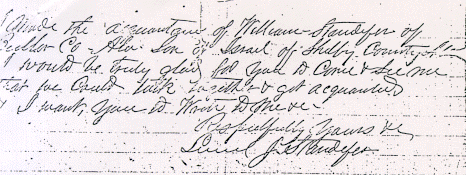 I made the acquantance of William Standefer of
Co Ala Son of Israel of Shelby County Ala
I would be truly glad for you to Come & See me
that we Could talk together & get acquainted
I want you to Write to Me &c
Respectfully Yours &c
J Standefer